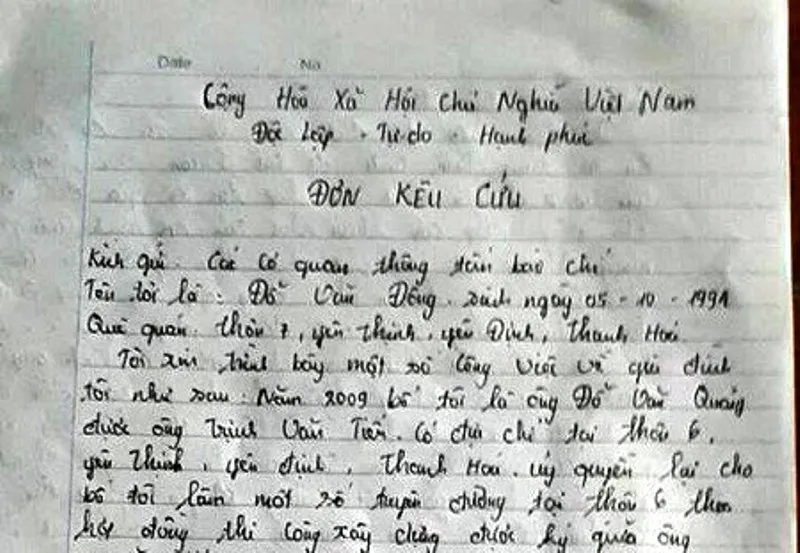 Date No
Cộng Hoà Xã Hội Chủ Nghĩa Việt Nam
Độc lập - Tự do - Hạnh phúc
ĐƠN KÊU CỨU
Kính gửi. Các cơ quan thông tấn báo chí
Tên tôi là: Đỗ Văn Đồng. sinh ngày 05 - 10 - 1991
Quê quán. thôn 7, yên thịnh, yên Định, Thanh Hoá
Tôi xin trình bày một số công việc về gia đình
tôi như sau: Năm 2009 bố tôi là ông Đỗ Văn Quảng
được ông Trịnh Văn Tiến. có địa chỉ tại thôn 6,
yên Thịnh, yên định, Thanh Hoá. uỷ quyền lại cho
bố tôi làm một số tuyến đường tại thôn 6 theo
hợp đồng thi công xây dựng được ký giữa ông